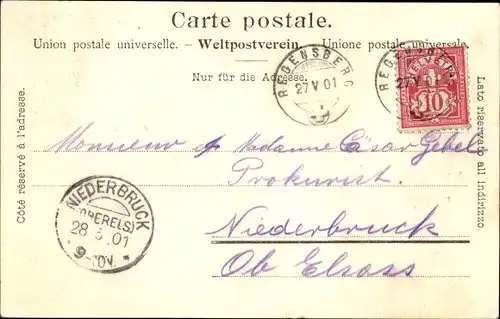 Carte postale.
Union postale universelle. – Weltpostverein. – Unione postale universale.
Nur für die Adresse.
REGENSBERG
27 V 01
REGENSBERG
27 V 01
HELVETIA
10
Côté réservé à l'adresse.
Lato riservato all indirizzo
Monsieur & Madame Cäsar Gebel
Prokurist
Niederbruck
Ob Elsass
NIEDERBRUCK
(OBERELS)
28 5 01
9-10V.